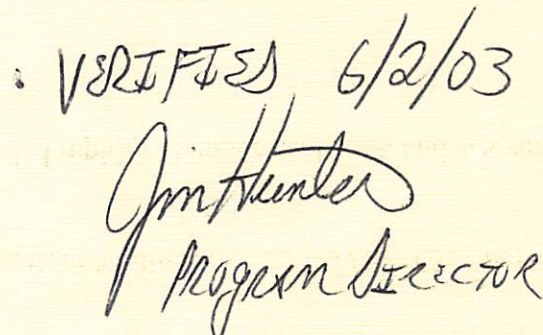 . VERIFIED 6/2/03
Jim Hunter
Program DIRECTOR